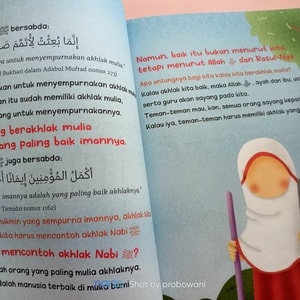 ﷺ bersabda:
إِنَّمَا بُعِثْتُ لِأُتَمِّمَ
untuk menyempurnakan akhlak mulia"
Bukhari dalam Adabul Mufrad nomor 273)
kan untuk menyempurnakan akhlak,
an itu sudah memiliki akhlak mulia,
ang untuk menyempurnakannya.
g berakhlak mulia
ang paling baik imannya.
ﷺ juga bersabda:
أَكْمَلُ الْمُؤْمِنِينَ إِيمَانًا
imannya adalah yang paling baik akhlaknya."
Tirmidzi nomor 1162)
mukmin yang sempurna imannya, akhlak
kita harus mencontoh akhlak Nabi ﷺ
mencontoh akhlak Nabi ﷺ?
ah orang yang paling mulia akhlaknya.
adalah manusia terbaik di muka bumi
Namun, baik itu bukan menurut kita,
tetapi menurut Allah dan Rasul-Nya
Apa untungnya bagi kita kalau kita berakhlak mulia?
Kalau akhlak kita baik, maka Allah, ayah dan ibu,
serta guru akan sayang pada kita.
Teman-teman mau, kan, semua orang sayang kepada
Kalau iya, teman-teman harus memiliki akhlak yang
Shot by probowani